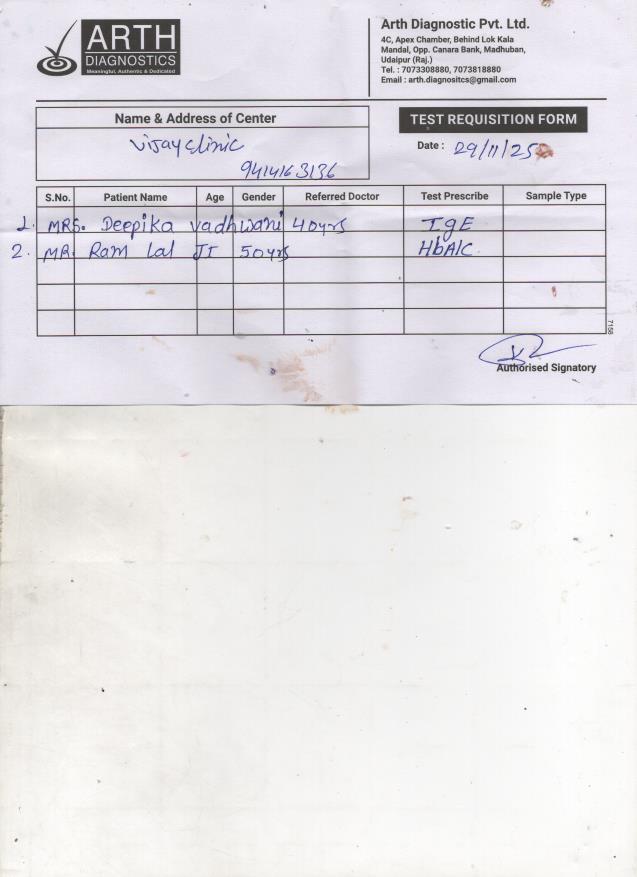 ARTH
DIAGNOSTICS
Meaningful, Authentic & Dedicated
Arth Diagnostic Pvt. Ltd.
4C, Apex Chamber, Behind Lok Kala
Mandal, Opp. Canara Bank, Madhuban,
Udaipur (Raj.)
Tel. : 7073308880, 7073818880
Email : arth.diagnositcs@gmail.com
Name & Address of Center
TEST REQUISITION FORM
Vijay clinic
Date : 29/11/25
9414163136
S.No. Patient Name Age Gender Referred Doctor Test Prescribe Sample Type
1. MRS. Deepika vadhwani 40yrs IgE
2. MR. Ram Lal JI 50yrs HbA1C
7158
Authorised Signatory